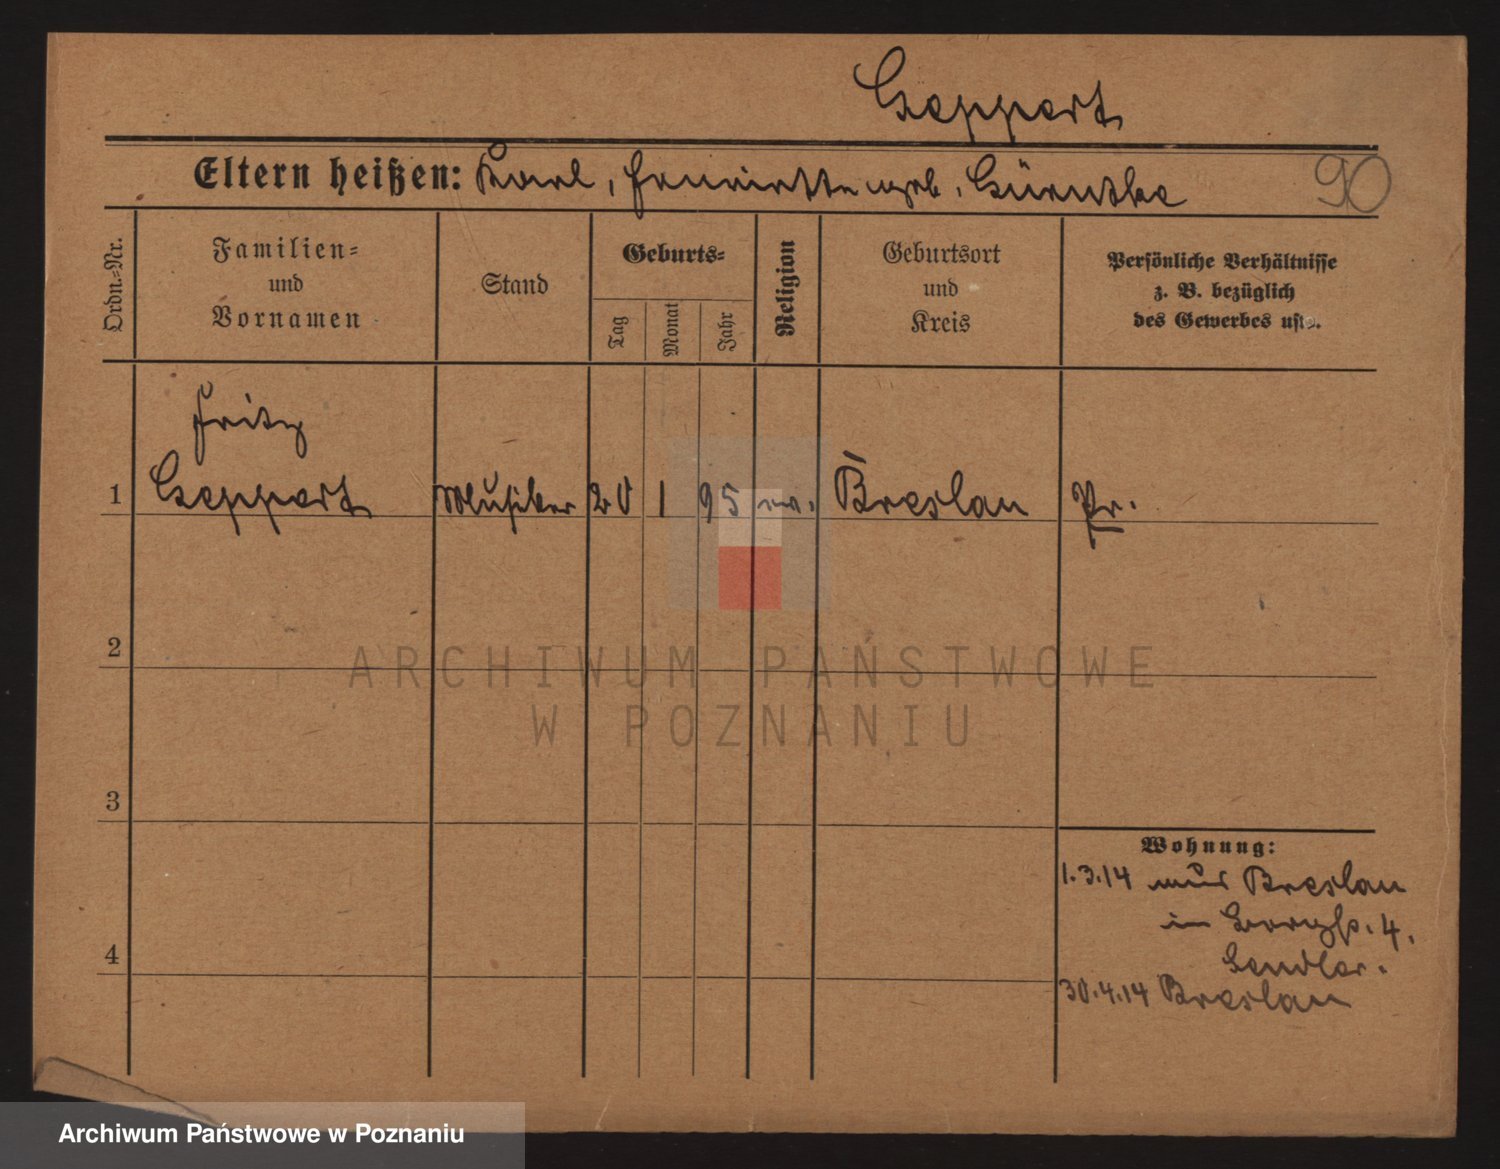 Geppert
Eltern heißen: Karl, Henriette geb.
90
Ordn.-Nr.
Familien-
und
Vornamen
Stand
Geburts-
Tag
Monat
Jahr
Religion
Geburtsort
und
Kreis
Persönliche Verhältnisse
z. B. bezüglich
des Gewerbes usw.
Fritz
1 Geppert Musiker 20 1 95 ev. Breslau Pr.
2
ARCHIWUM PAŃSTWOWE
W POZNANIU
3
Wohnung:
1.3.14 aus Breslau
in 4.
4
30.4.14 Breslau
Archiwum Państwowe w Poznaniu